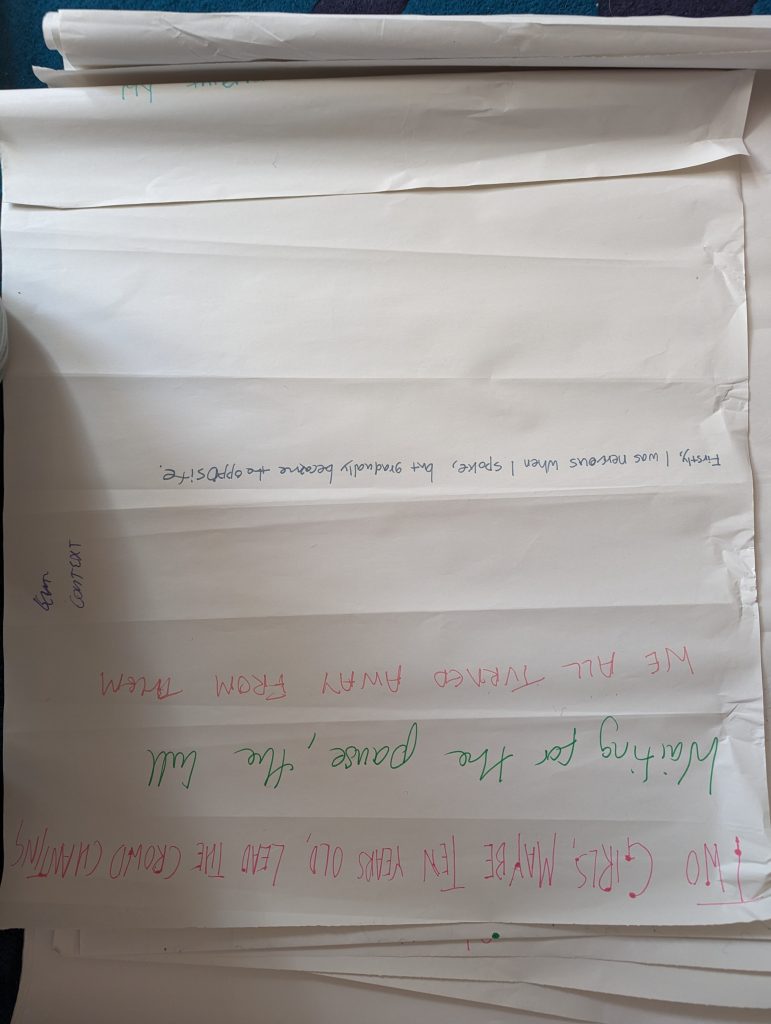 TWO GIRLS, MAYBE TEN YEARS OLD, LEAD THE CROWD CHANTING
Waiting for the pause, the lull
WE ALL TURNED AWAY FROM THEM
CONTEXT
Firstly, I was nervous when I spoke, but gradually became the opposite.